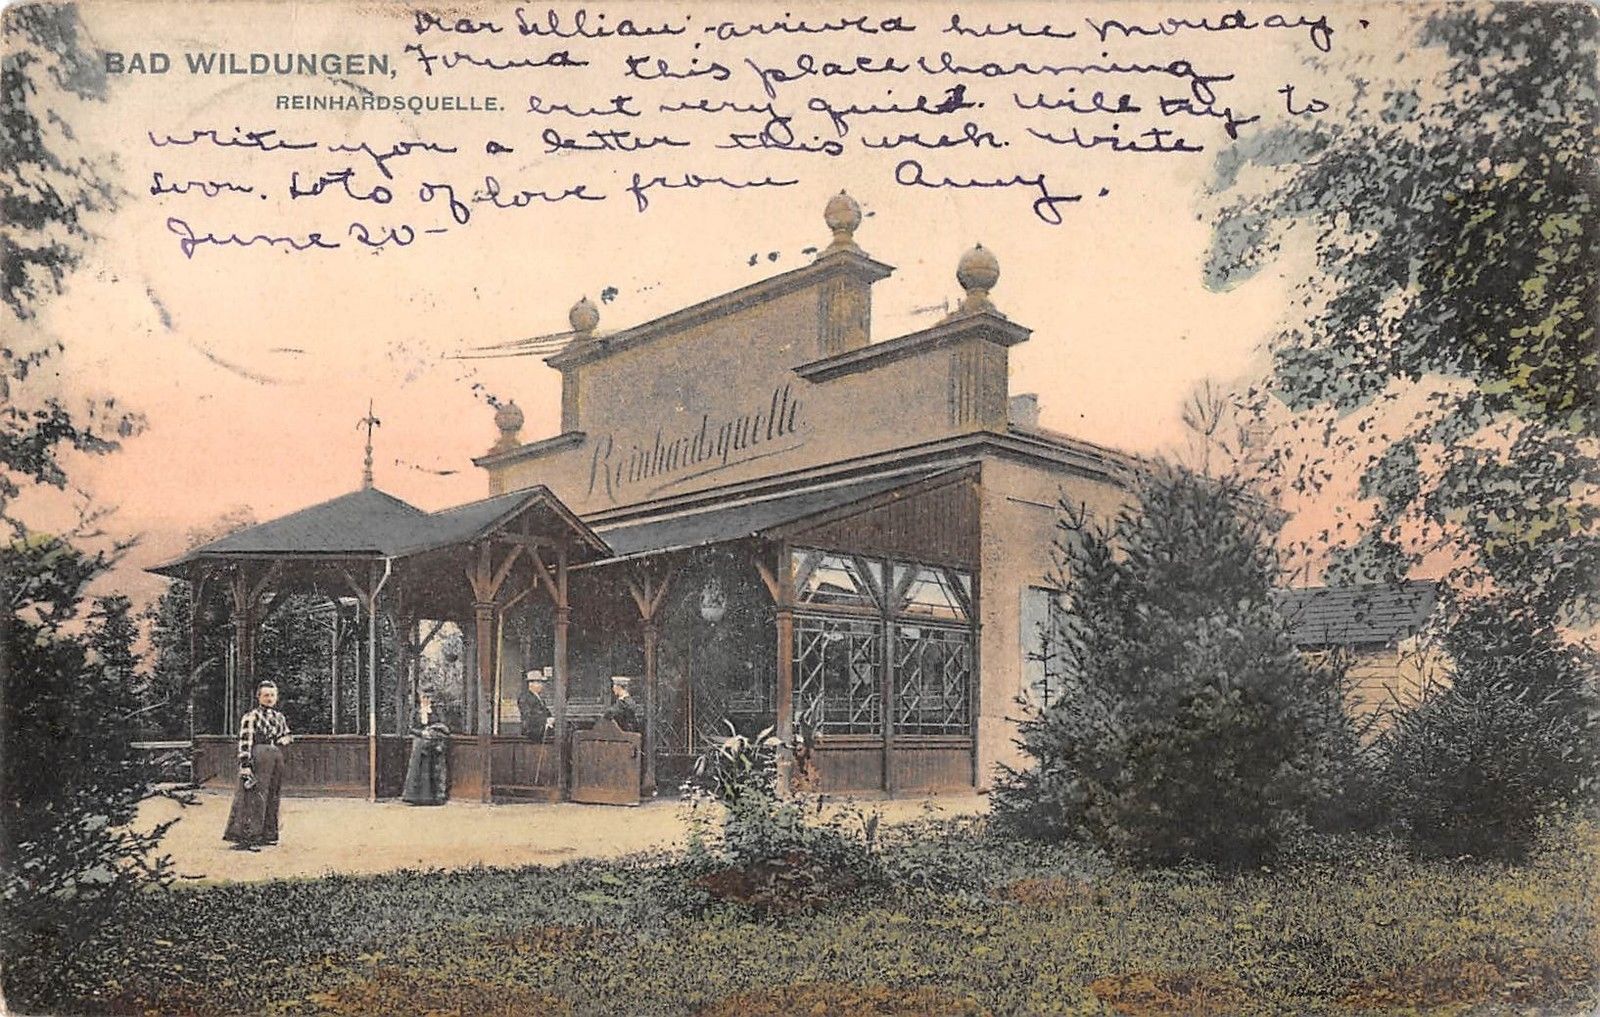 Dear Lillian, - arrived here Monday.
BAD WILDUNGEN, Found this place charming
REINHARDSQUELLE. but very quiet. Will try to
write you a letter this week. Write
soon. Lots of love from Amy.
June 20 -
Reinhardsquelle.